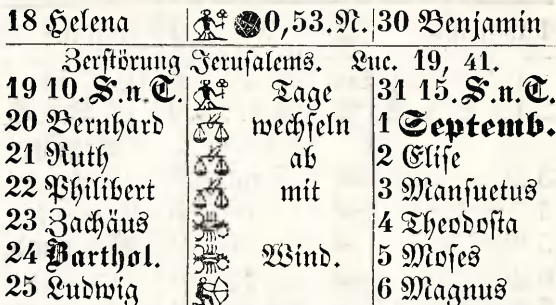 18 Helena 0,53.N. 30 Benjamin
Zerstörung Jerusalems. Luc. 19, 41.
19 10.S.n.T. Tage 31 15.S.n.T.
20 Bernhard wechseln 1 Septemb.
21 Ruth ab 2 Elise
22 Philibert mit 3 Mansuetus
23 Zachäus 4 Theodosia
24 Barthol. Wind. 5 Moses
25 Ludwig 6 Magnus